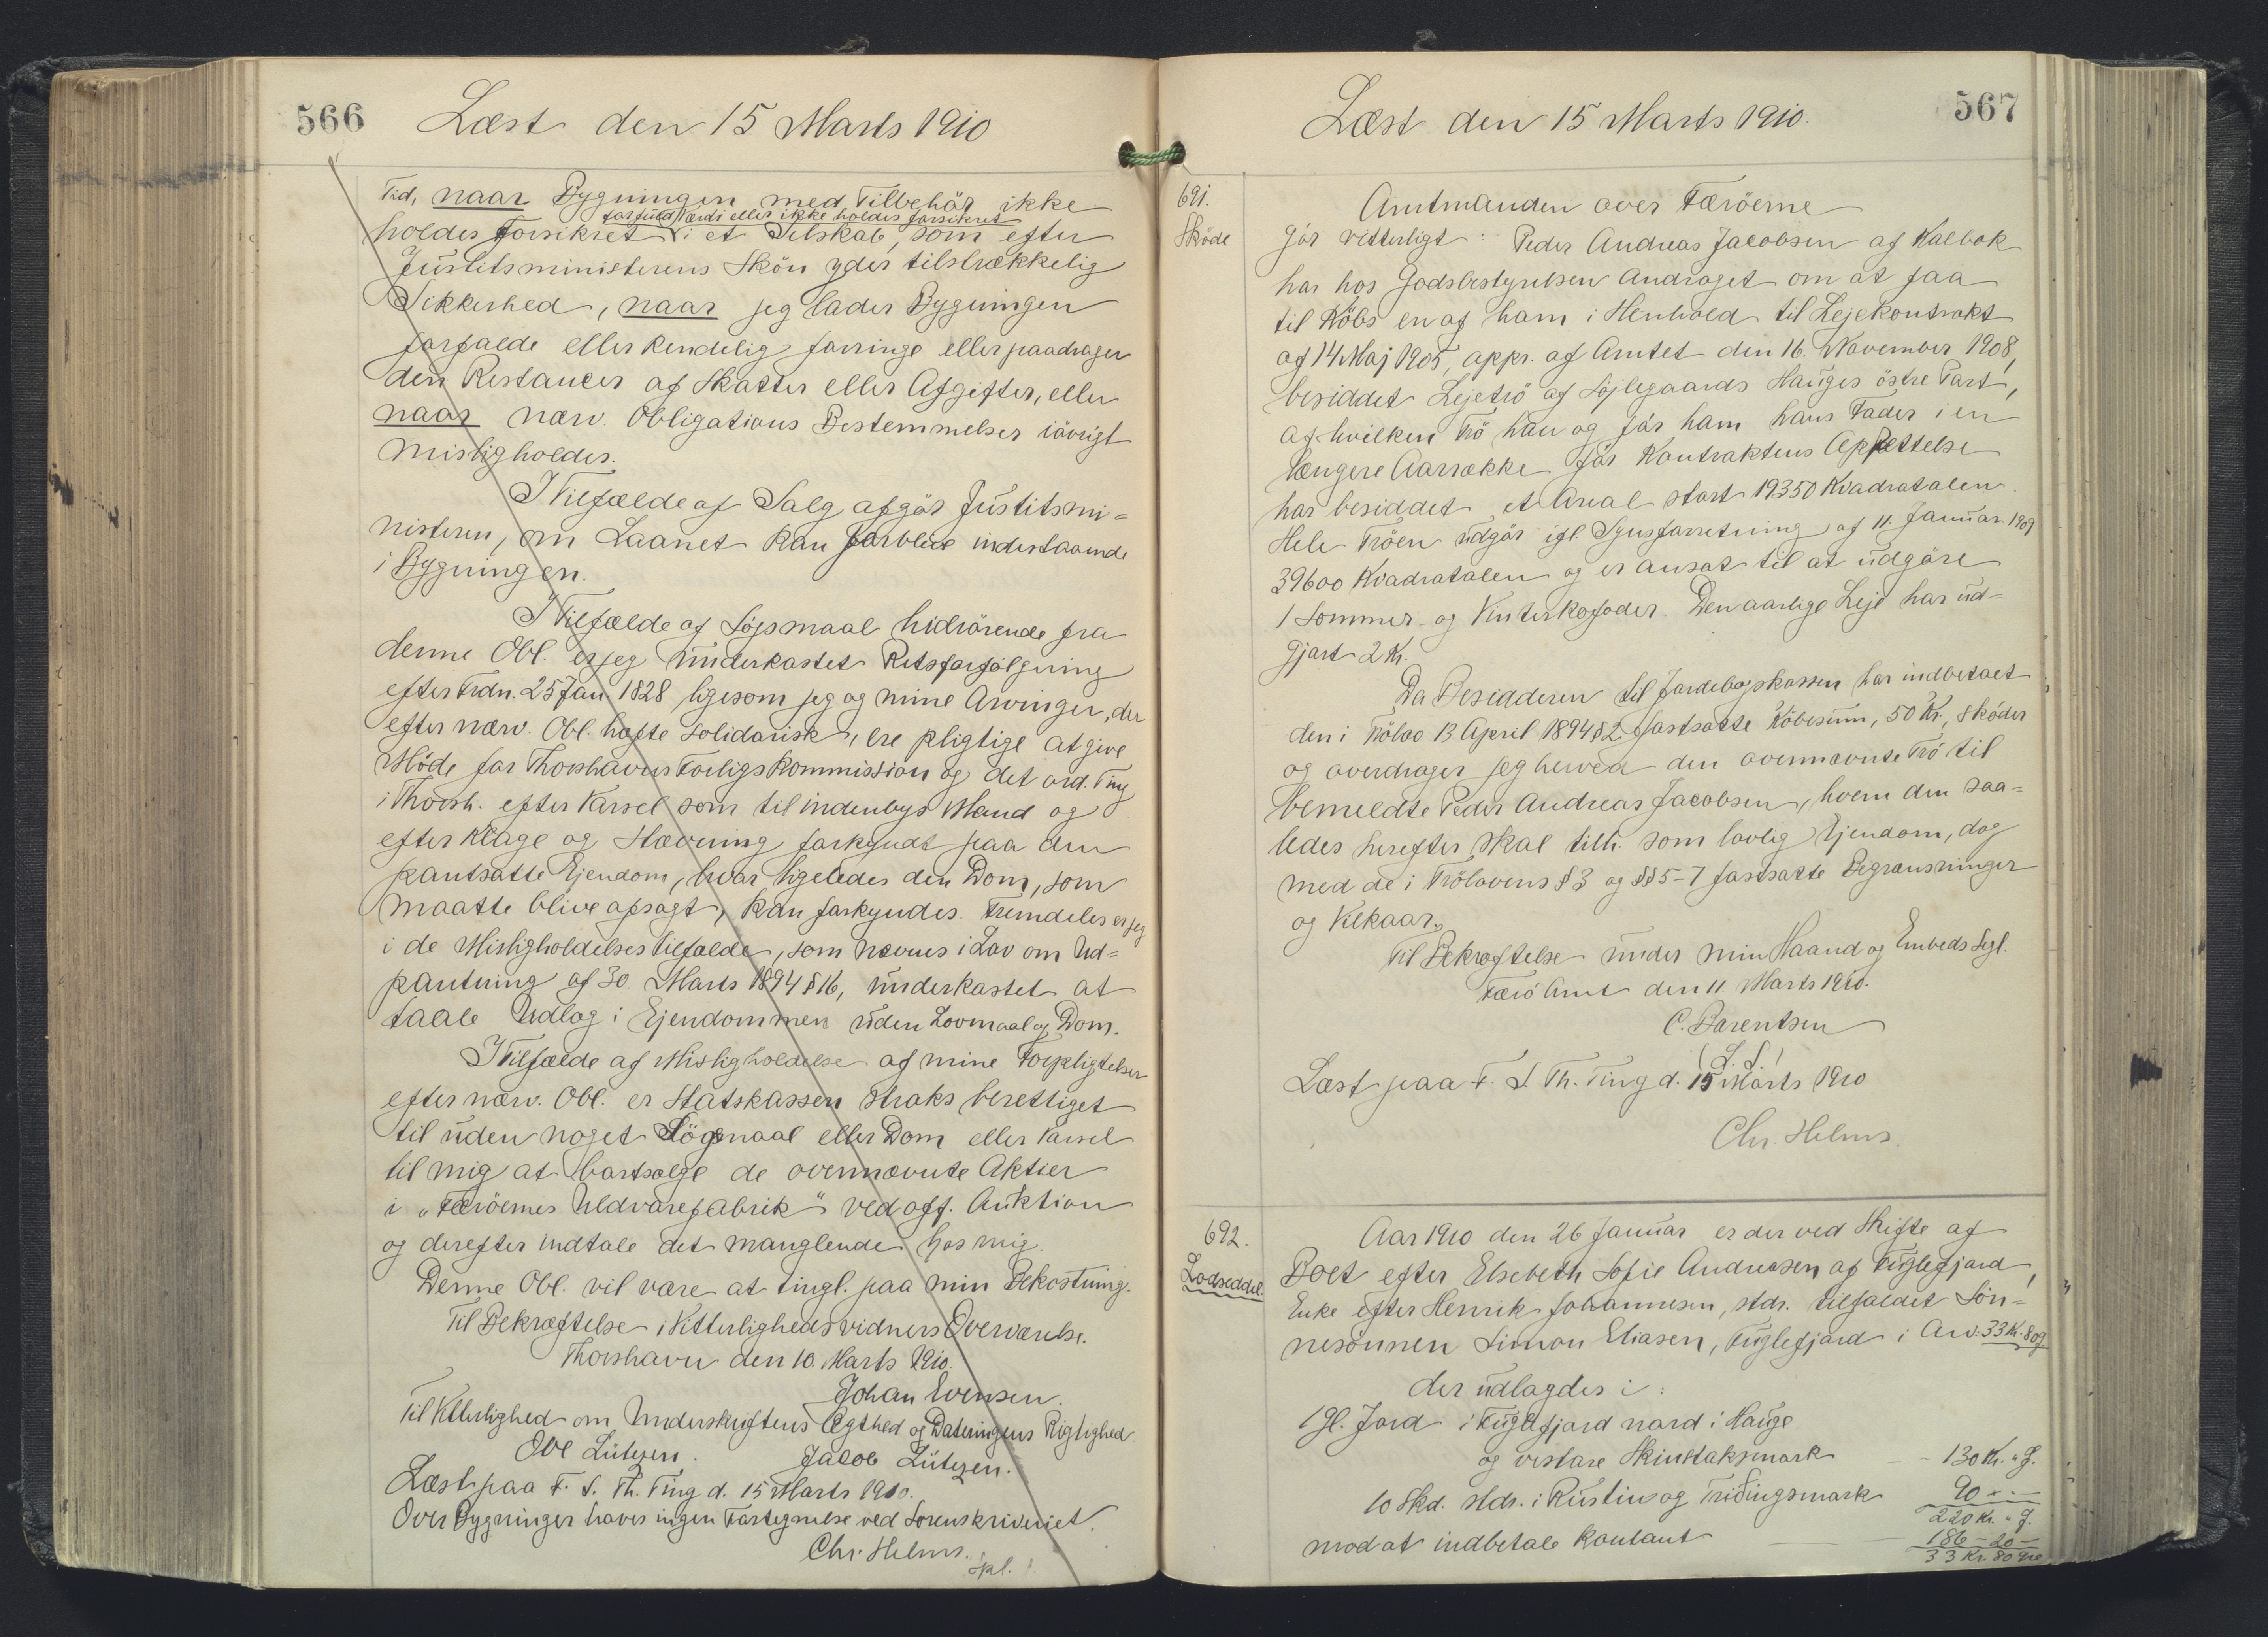 566
Læst den 15 Marts 1910
Tid, naar Bygningen med Tilbehör ikke
for fuld Værdi eller ikke holdes forsikret
holdes Forsikret i et Selskab, som efter
Justitsministerens Skön yder tilstrækkelig
Sikkerhed, naar jeg lader Bygningen
forfalde eller kendelig forringe eller paadrager
den Restancer af Skatter eller Afgifter, eller
naar nærv. Obligations Bestemmelser iövrigt
misligholdes.
I Tilfælde af Salg afgör Justitsmi=
nisteren, om Laanet kan forblive indestaaende
i Bygningen.
I Tilfælde af Sögsmaal hidrörende fra
denne Obl. er jeg underkastet Retsforfölgning
efter Frdn. 25 Jan. 1828 ligesom jeg og mine Arvinger, der
efter nærv. Obl. hæfte solidarisk, ere pligtige at give
Möde for Thorshavns Forligskommission og det ord. Ting
i Thorsh. efter Varsel som til indenbys Mand og
efter Klage og Stævning forkyndt paa den
pantsatte Ejendom, hvor ligeledes den Dom, som
maatte blive afsagt, kan forkyndes. Fremdeles er jeg
i de Misligholdelsestilfælde, som nævnes i Lov om Ud=
pantning af 30. Marts 1894 § 16, underkastet at
taale Udlæg i Ejendommen uden Lovmaal og Dom.
I Tilfælde af Misligholdelse af mine Forpligtelser
efter nærv. Obl. er Statskassen straks berettiget
til uden noget Sögsmaal eller Dom eller Varsel
til mig at bortsælge de ovennævnte Aktier
i "Færöernes Uldvarefabrik" ved off. Auktion
og derefter indtale det manglende hos mig.
Denne Obl. vil være at tingl. paa min Bekostning.
Til Bekræftelse i Vitterlighedsvidners Overværelse.
Thorshavn den 10. Marts 1910.
Johan Evensen.
Til Vitterlighed om Underskriftens Ægthed og Dateringens Rigtighed.
Ove Lützen. Jacob Lützen.
Læst paa F. S. Th. Ting d. 15 Marts 1910.
Over Bygninger haves ingen Fortegnelse ved Sorenskriveriet.
Chr. Helms.
567
Læst den 15 Marts 1910.
691.
Sköde
Amtmanden over Færöerne
gör vitterligt: Peder Andreas Jacobsen af Kalbak
har hos Godsbestyrelsen andraget om at faa
til Köbs en af ham i Henhold til Lejekontrakt
af 14 Maj 1905, appr. af Amtet den 16. November 1908,
besiddet Lejetrö af Söjlegaards Hauges östre Part,
af hvilken Trö han og för ham hans Fader i en
længere Aarrække för Kontraktens Oprettelse
har besiddet et Areal stort 19350 Kvadratalen.
Hele Tröen udgör ifl. Synsforretning af 11. Januar 1909
39600 Kvadratalen og er ansat til at udgöre
1 Sommer- og Vinterkofoder. Den aarlige Leje har ud=
gjort 2 Kr.
Da Besidderen til Jordebogskassen har indbetalt
den i Trölov 13 April 1894 § 2 fastsatte Köbesum, 50 Kr., sköder
og overdrager jeg herved den ovennævnte Trö til
bemeldte Peder Andreas Jacobsen, hvem den saa=
ledes herefter skal tilh. som lovlig Ejendom, dog
med de i Trölovens § 3 og §§ 5-7 fastsatte Begrænsninger
og Vilkaar.
Til Bekræftelse under min Haand og Embeds Segl.
Færö Amt den 11. Marts 1910.
C. Bærentsen
(L. S.)
Læst paa F. S. Th. Ting d. 15 Marts 1910
Chr. Helms.
692.
Lodseddel.
Aar 1910 den 26 Januar er der ved Skifte af
Boet efter Elsebeth Sofie Andreasen af Fuglefjord,
Enke efter Henrik Johannesen, stdr. tilfaldet Sön=
nesönnen Simon Eliasen, Fuglefjord i Arv: 33 Kr. 80 ø
der udlagdes i:
1 Gl. Jord i Fuglefjord nord i Hauge
og vestare Skinstaksmark - - 130 Kr. " ø.
10 Skd. stdr. i Rustin og Tridingsmark 90 - " -
220 Kr. " ø.
mod at indbetale kontant 186 - 20 -
33 Kr. 80 Øre